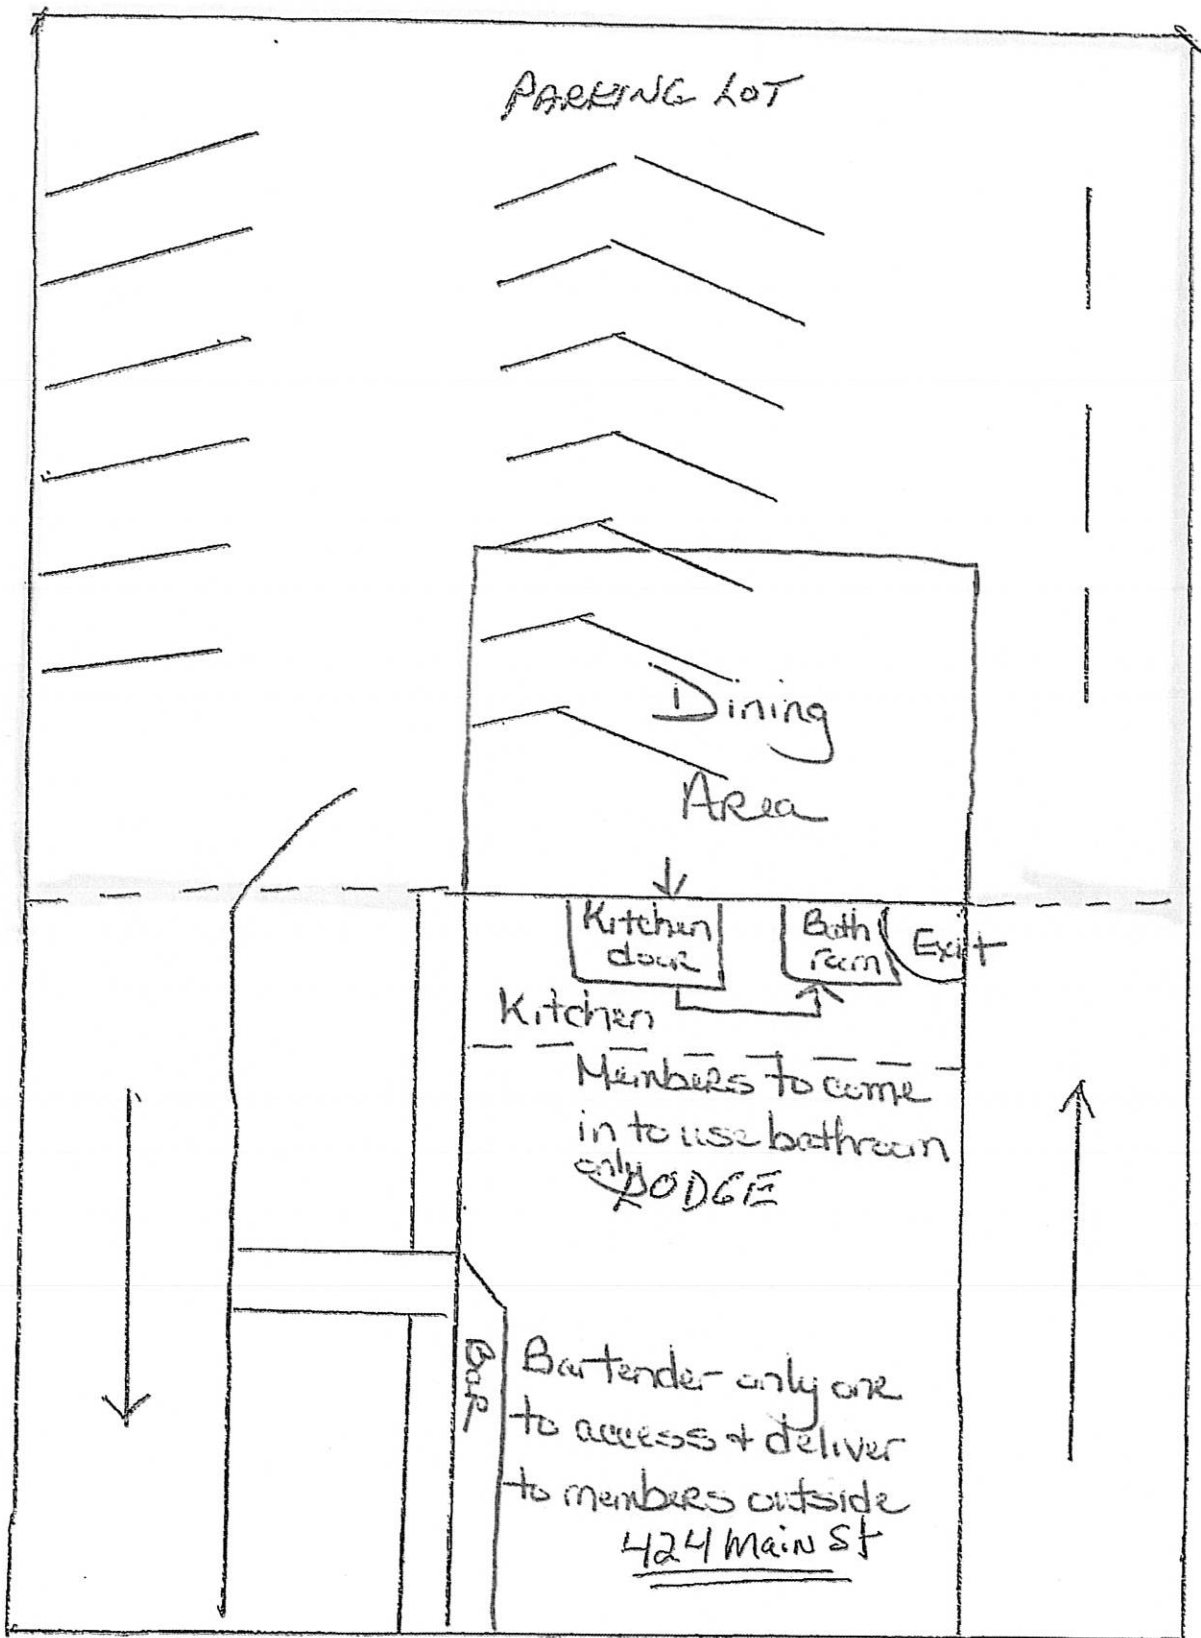 PARKING LOT
Dining
Area
Kitchen
door
Bath
room
Exit
Kitchen
Members to come
in to use bathroom
only
LODGE
BAR
Bartender - only one
to access + deliver
to members outside
424 Main St